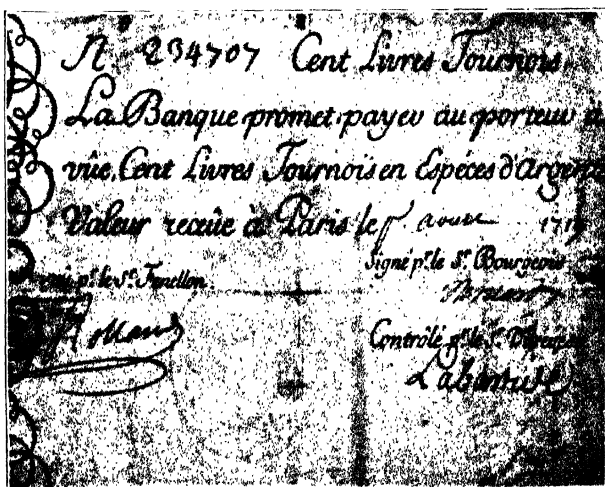 N 234707 Cent Livres Tournois.
La Banque promet payer au porteur a
vûe, Cent Livres Tournois en Especes d'Argent,
Valeur receüe à Paris le 1719
Signé p.r le S.r Bourgeois
p.r le S.r Fenellon.
Contrôlé p.r le S.r